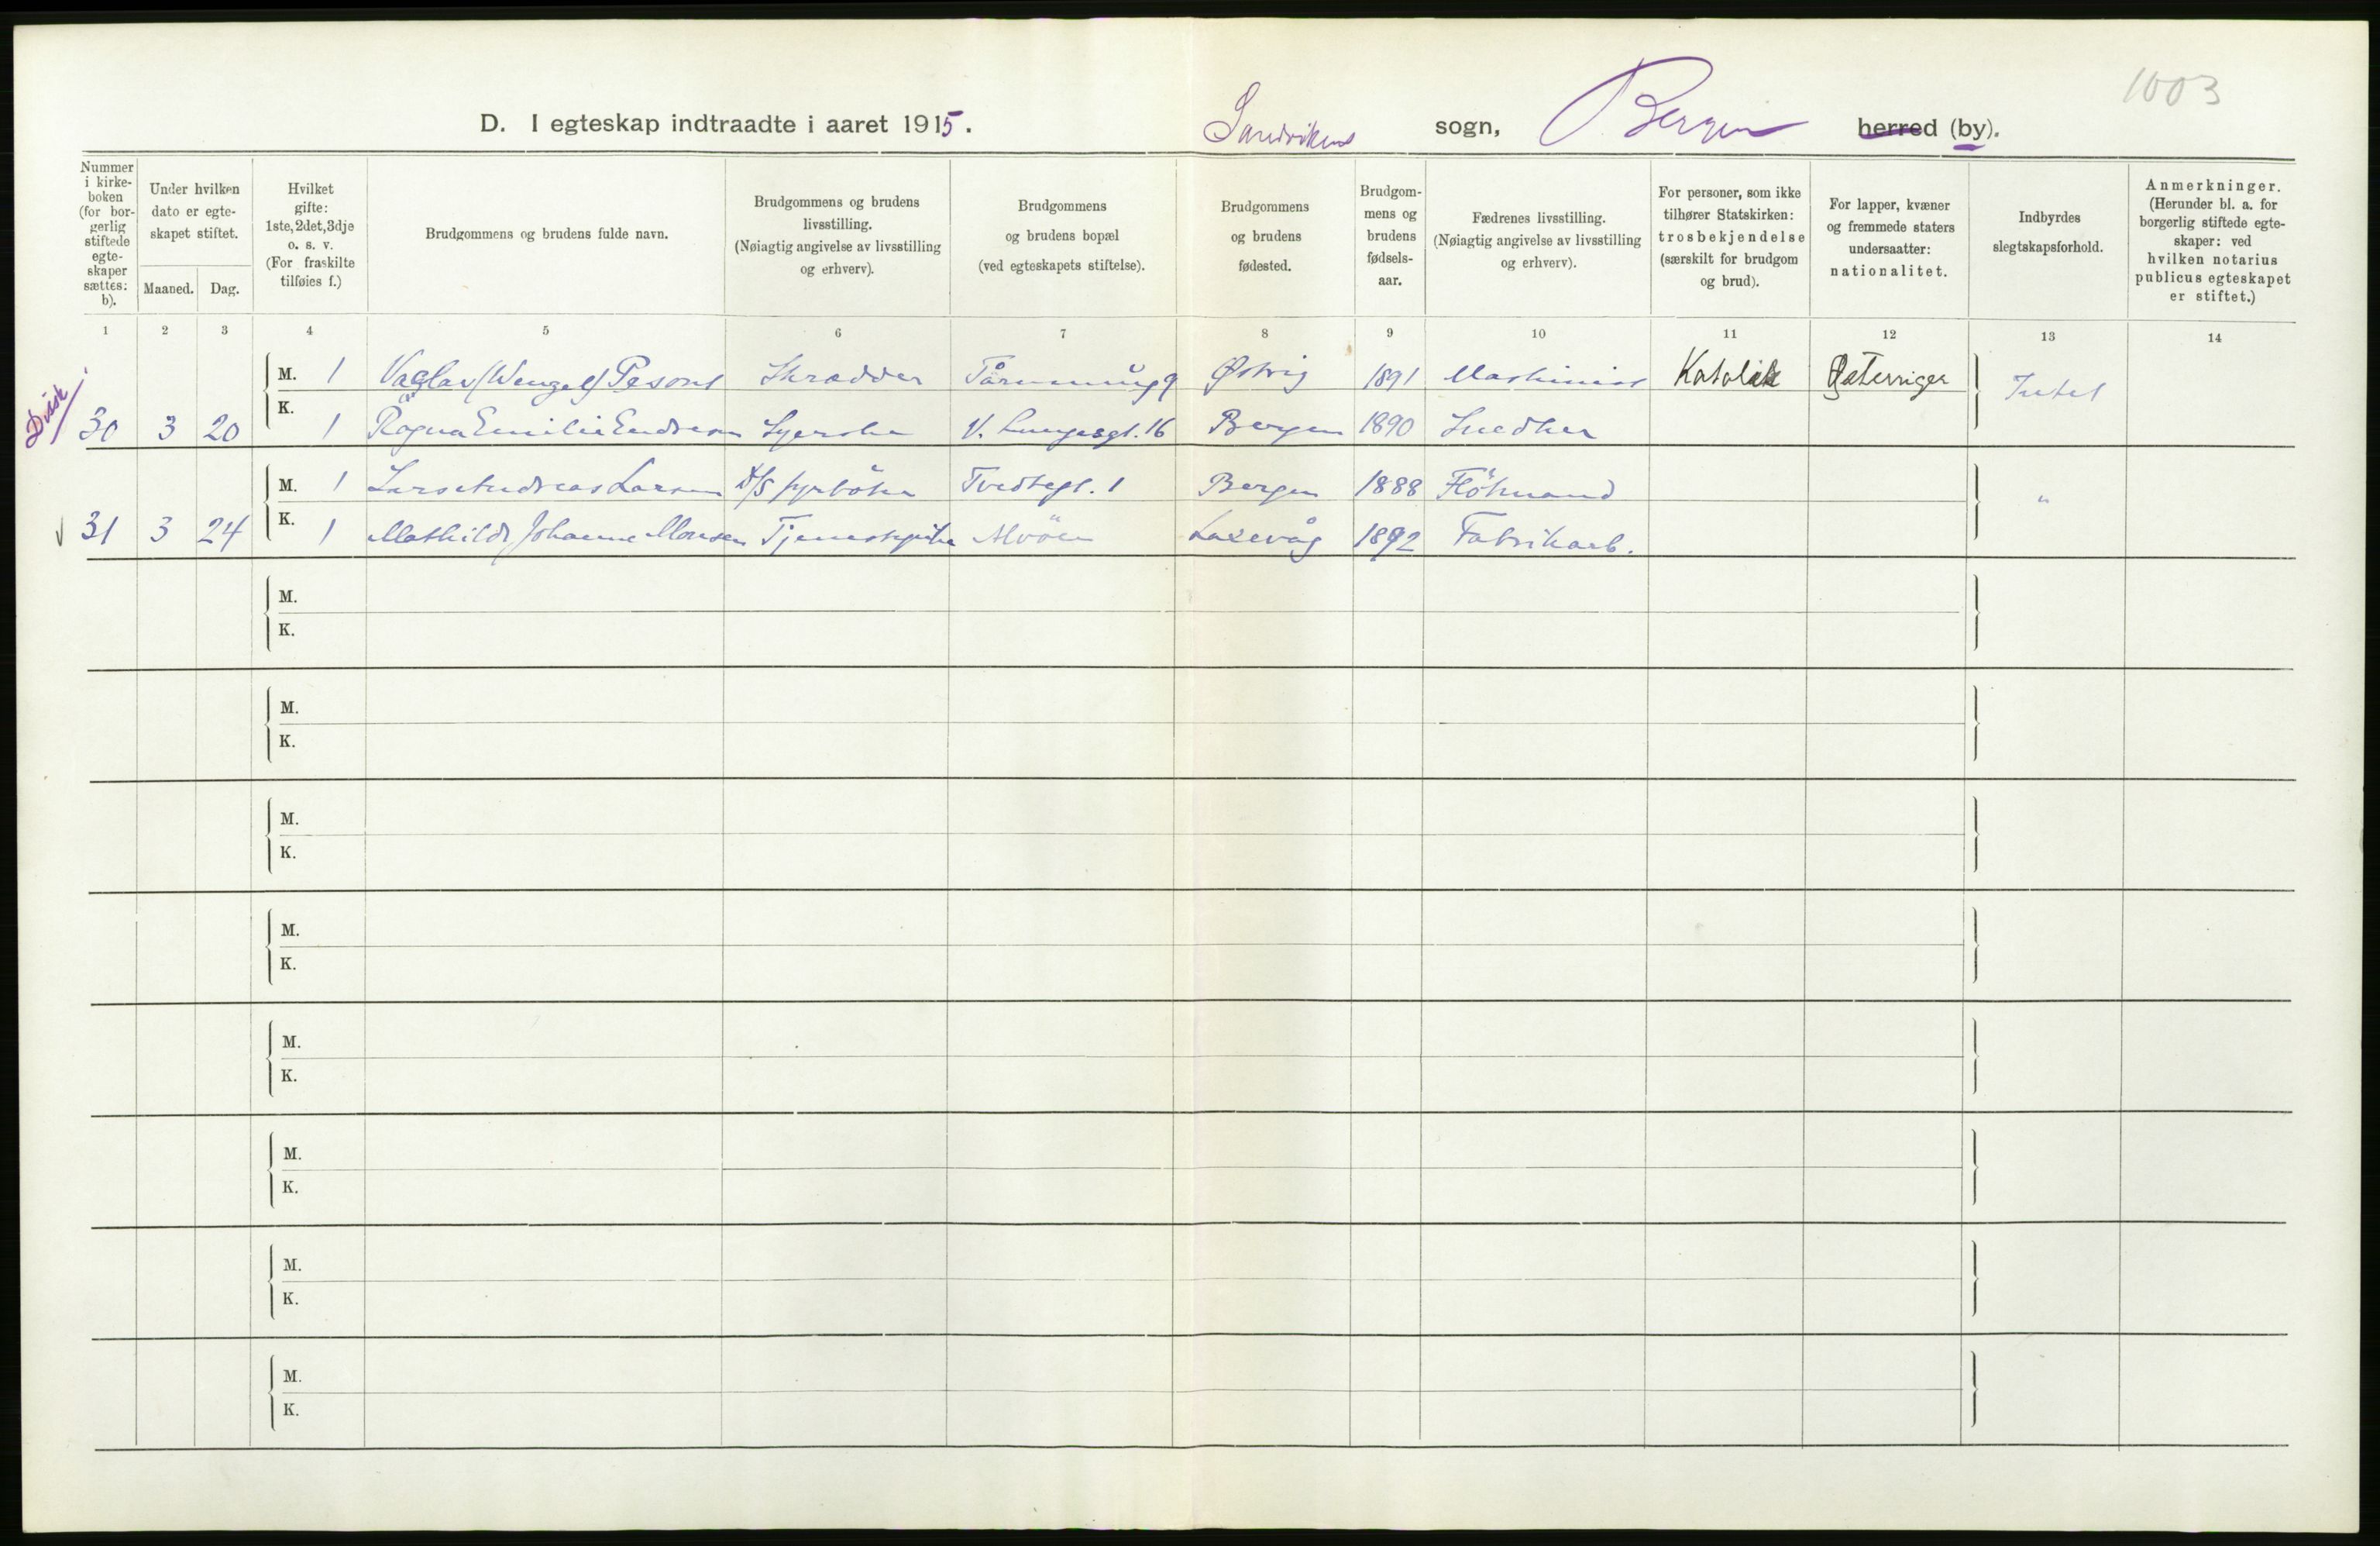 1003
D. I egteskap indtraadte i aaret 1915. Sandvikens sogn, Bergen herred (by).
Nummer i kirke-boken (for bor-gerlig stiftede egte-skaper sættes: b).
Under hvilken dato er egte-skapet stiftet.
Maaned. Dag.
Hvilket gifte: 1ste, 2det, 3dje o. s. v. (For fraskilte tilføies f.)
Brudgommens og brudens fulde navn.
Brudgommens og brudens livsstilling. (Nøiagtig angivelse av livsstilling og erhverv).
Brudgommens og brudens bopæl (ved egteskapets stiftelse).
Brudgommens og brudens fødested.
Brudgom-mens og brudens fødsels-aar.
Fædrenes livsstilling. (Nøiagtig angivelse av livsstilling og erhverv).
For personer, som ikke tilhører Statskirken: trosbekjendelse (særskilt for brudgom og brud).
For lapper, kvæner og fremmede staters undersaatter: nationalitet.
Indbyrdes slegtskapsforhold.
Anmerkninger. (Herunder bl. a. for borgerlig stiftede egte-skaper: ved hvilken notarius publicus egteskapet er stiftet.)
1 2 3 4 5 6 7 8 9 10 11 12 13 14
M. 1 Vaclav (Wenzel) Skrædder 9 Østrig 1891 Maskinist Katolik Østerriger Intet
Dissk
30 3 20 K. 1 Ragna Emilie Endresen Syerske V. Lungegsgt. 16 Bergen 1890 Snedker
M. 1 Lars Andreas Larsen D/S fyrböter Tvedtegt. 1 Bergen 1888 Flötmand "
31 3 24 K. 1 Mathilde Johanne Monsen Tjenestepike Alvöen Laxevåg 1892 Fabrikarb.
M.
K.
M.
K.
M.
K.
M.
K.
M.
K.
M.
K.
M.
K.
M.
K.